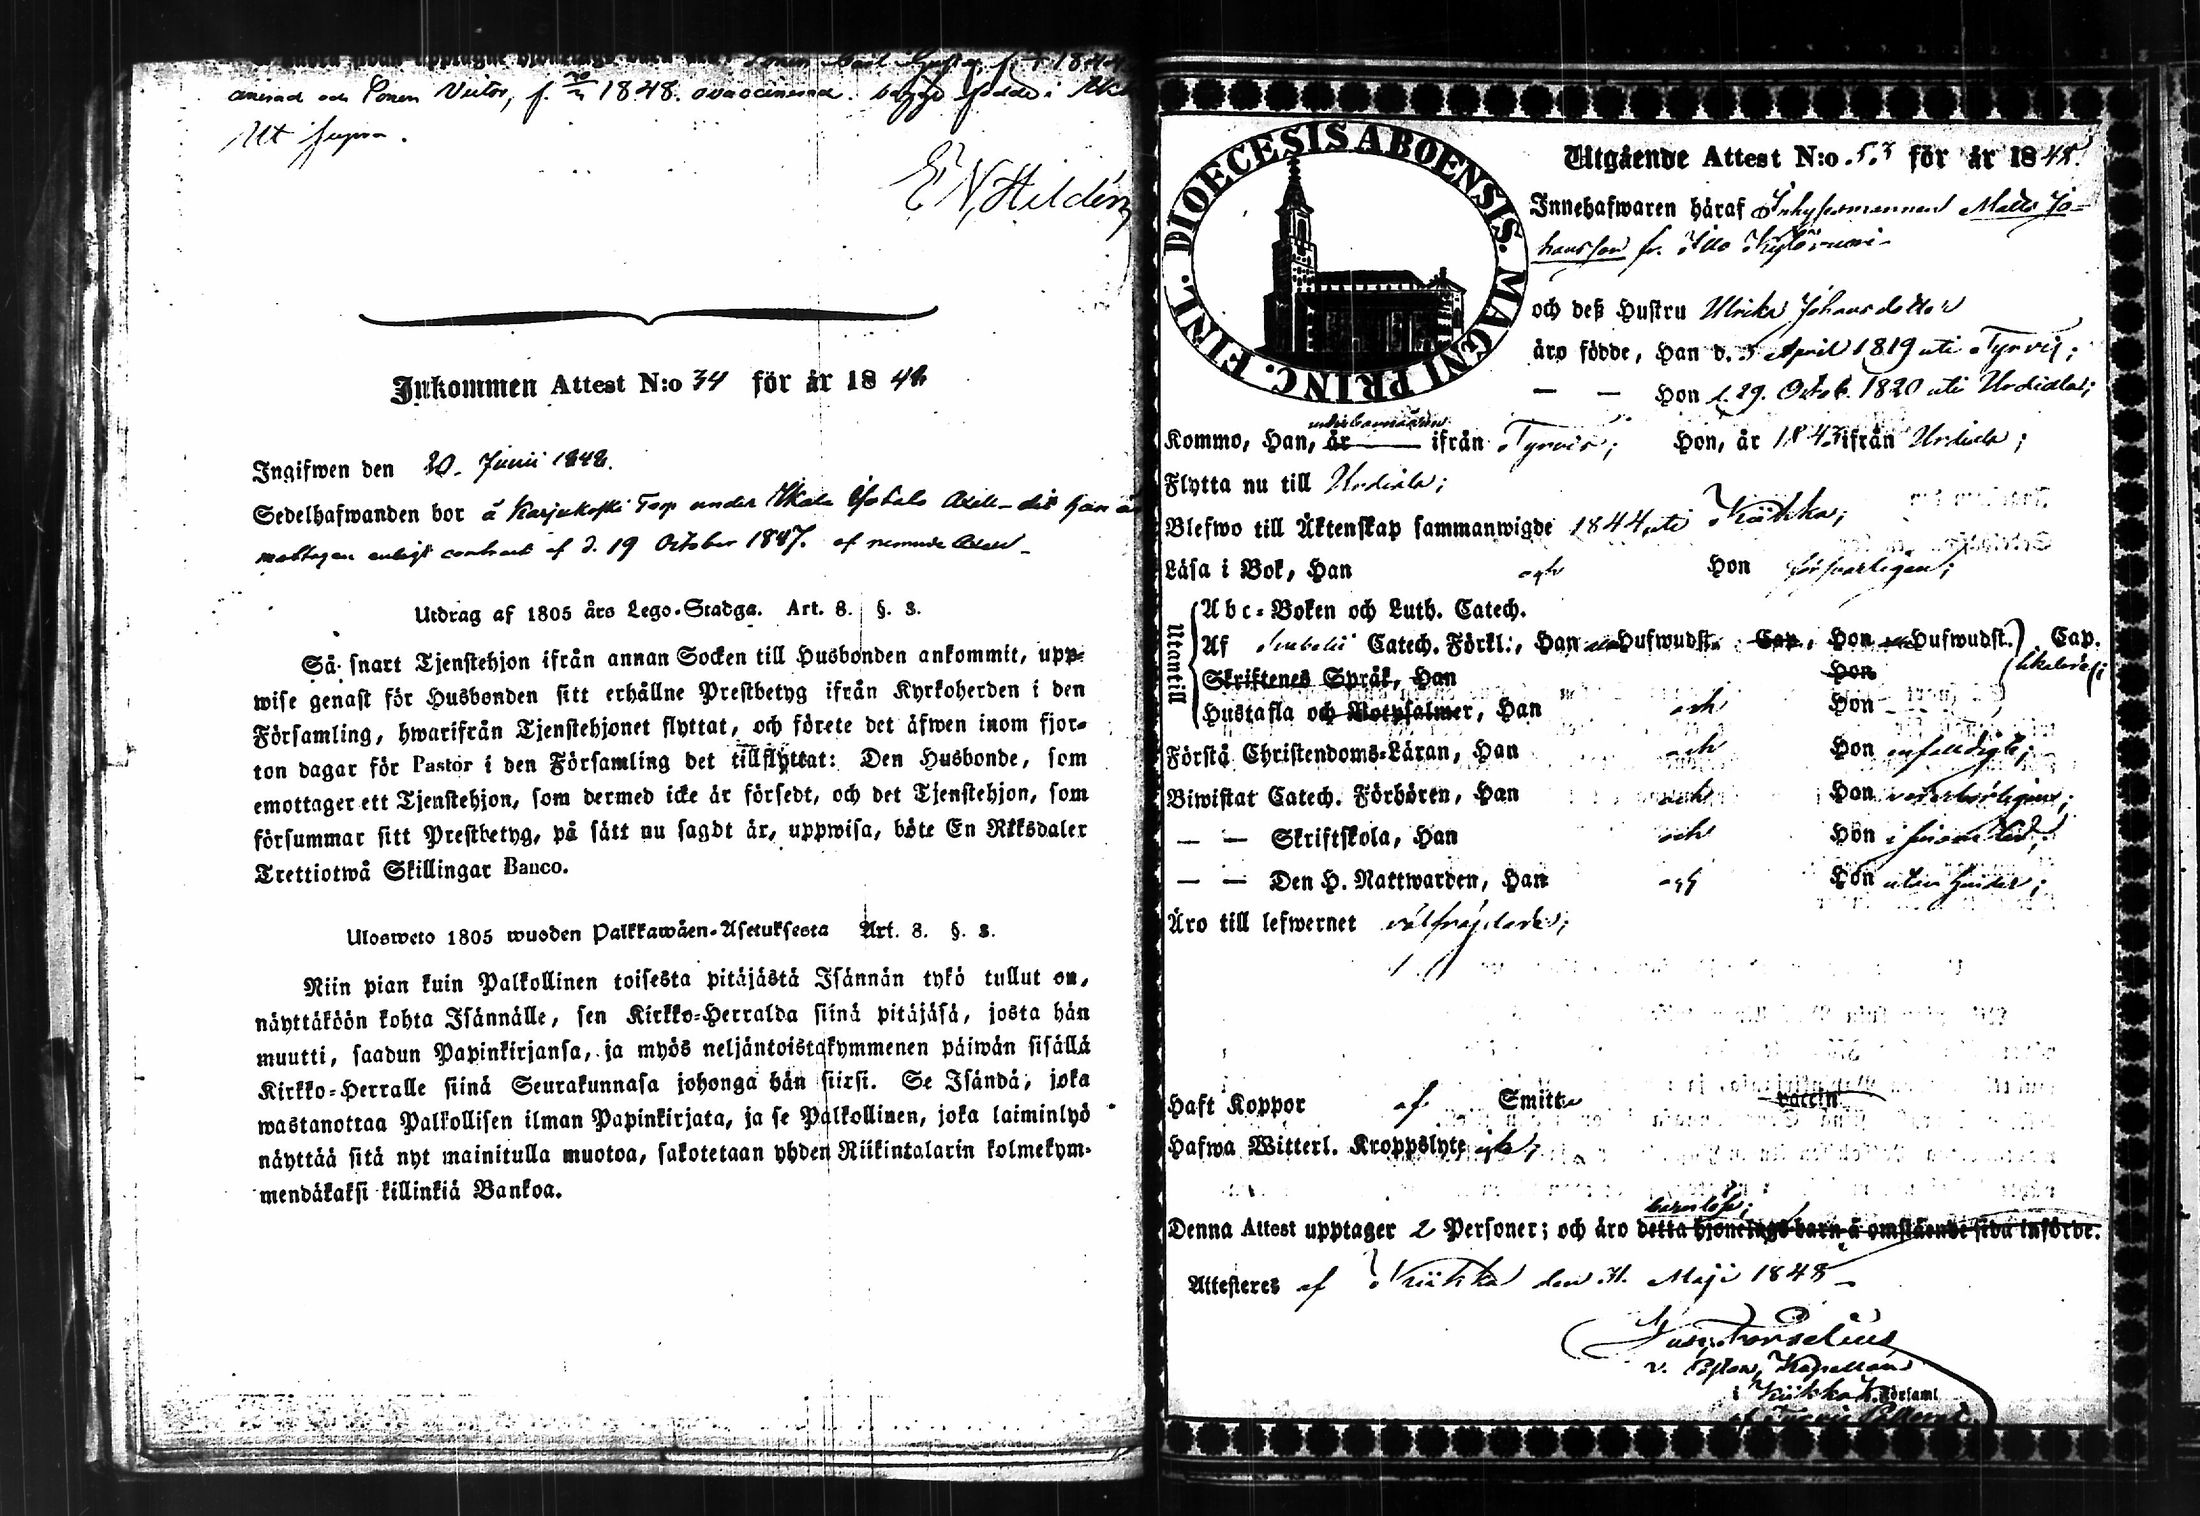 och Sonen Victor, f. 1848. ovaccinerad. begge födde i
Ut supra.
E N Hildén
Inkommen Attest N:o 34 för år 1848
Ingifwen den 20. Junii 1848.
Sedelhafwanden bor å Karjukoski Torp under
mottagen enligt contract af d. 19 October 1847. af
Utdrag af 1805 års Lego-Stadga. Art. 8. §. 3.
Så snart Tjenstehjon ifrån annan Socken till Husbonden ankommit, upp-
wise genast för Husbonden sitt erhållne Prestbetyg ifrån Kyrkoherden i den
Församling, hwarifrån Tjenstehjonet flyttat, och förete det äfwen inom fjor-
ton dagar för Pastor i den Församling det tillflyttat: Den Husbonde, som
emottager ett Tjenstehjon, som dermed icke är försedt, och det Tjenstehjon, som
försummar sitt Prestbetyg, på sätt nu sagdt är, uppwisa, böte En Riksdaler
Trettiotwå Skillingar Banco.
Ulosweto 1805 wuoden Palkkawäen-Asetuksesta Art. 8. §. 3.
Niin pian kuin Palkollinen toisesta pitäjästä Isännän tykö tullut on,
näyttäköön kohta Isännälle, sen Kirkko-Herralda siinä pitäjäsä, josta hän
muutti, saadun Papinkirjansa, ja myös neljäntoistakymmenen päiwän sisällä
Kirkko-Herralle siinä Seurakunnasa johonga hän siirsi. Se Isändä, joka
wastanottaa Palkollisen ilman Papinkirjata, ja se Palkollinen, joka laiminlyö
näyttää sitä nyt mainitulla muotoa, sakotetaan yhden Riikintalarin kolmekym-
mendäkaksi killinkiä Bankoa.
DIOECESIS ABOENSIS. MAGNI PRINC. FINL.
Utgående Attest N:o 53 för år 1848.
Innehafwaren häraf Inhysesmannen Matts Jo-
hansson fr.
och deß Hustru Ulrika Johansdotter
äro födde, Han d. 5 April 1819 uti Tyrvis;
— — Hon d. 29. Octob. 1820 uti Urdiala;
Kommo, Han, år ifrån Tyrvis; Hon, år 1843 ifrån Urdiala;
Flytta nu till Urdiala;
Blefwo till Äktenskap sammanwigde 1844 uti Kiikka;
Läsa i Bok, Han och Hon försvarligen;
Utantill
Abc-Boken och Luth. Catech.
Af Catech. Förkl:, Han Hufwudst. Cap., Hon Hufwudst. Cap.
Skriftenes Språk, Han Hon
Hustafla och Botpsalmer, Han och Hon
Förstå Christendoms-Läran, Han och Hon enfaldigt;
Biwistat Catech. Förhören, Han och Hon vederbörligen;
— — Skriftskola, Han och Hon i sinom tid;
— — Den H. Nattwarden, Han och Hon utan hinder;
Äro till lefwernet välfrejdade;
Haft Koppor af Smitta vaccin
Hafwa Witterl. Kroppslyte ej;
barnlöse;
Denna Attest upptager 2 Personer; och äro detta hjonelags barn å omstående sida införde.
Attesteres af Kiikka den 31. Maji 1848
v. Pastor, Kapellan
i Kiikka K. Församl